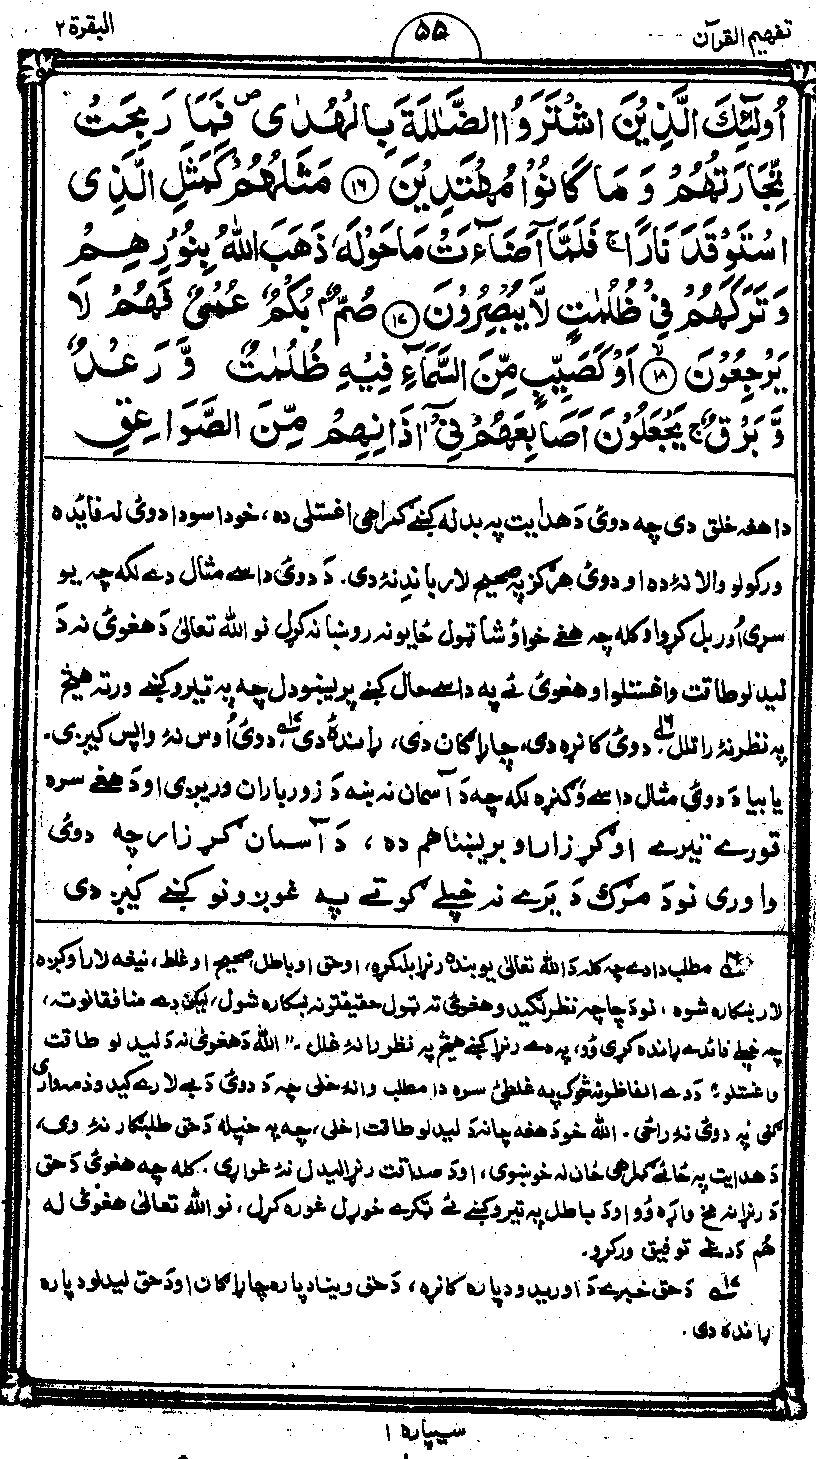 تفهيم القرآن
۵۵
البقرة ۲
اُولٰٓئِكَ الَّذِيْنَ اشْتَرَوُا الضَّلٰلَةَ بِالْهُدٰى ص فَمَا رَبِحَتْ
تِّجَارَتُهُمْ وَ مَا كَانُوْا مُهْتَدِيْنَ ۱۶ مَثَلُهُمْ كَمَثَلِ الَّذِى
اسْتَوْقَدَ نَارًا ج فَلَمَّآ اَضَآءَتْ مَا حَوْلَهٗ ذَهَبَ اللهُ بِنُوْرِهِمْ
وَ تَرَكَهُمْ فِىْ ظُلُمٰتٍ لَّا يُبْصِرُوْنَ ۱۷ صُمٌّۢ بُكْمٌ عُمْىٌ فَهُمْ لَا
يَرْجِعُوْنَ ۱۸ اَوْ كَصَيِّبٍ مِّنَ السَّمَآءِ فِيْهِ ظُلُمٰتٌ وَّ رَعْدٌ
وَّ بَرْقٌ ج يَجْعَلُوْنَ اَصَابِعَهُمْ فِىْٓ اٰذَانِهِمْ مِّنَ الصَّوَاعِقِ
دا هغه خلق دی چه دوئ دَ هدایت په بدله کښے ګمراهی اغستلی ده، خو دا سودا دوئ له فائده
ورکولو والا نۀ ده او دوئ هرګز په صحیح لار باندِ نۀ دی. دَ دوئ داسے مثال دے لکه چه یو
سړی اُور بل کړو او کله چه هغے خواؤ شا ټول ځایونه روښانه کړل نو الله تعالیٰ دَ هغوئ نه دَ
لیدلو طاقت واغستلو او هغوئ ئے په داسے حال کښے پریښودل چه په تیرو کښے ورته هیڅ
په نظر نۀ راتلل ۱۶ دوئ کانړه دی، چاراګان دی، ړاندۀ دی ۱۷ دوئ اُوس نۀ واپس کیږی.
یا بیا دَ دوئ مثال داسے وُګنړه لکه چه دَ آسمان نه ښه دَ زور باران وریږی او دَ هغے سره
تورے تیرے او ګړزار او بریښنا هم ده، دَ آسمان ګړزار چه دوئ
واوری نو دَ مرګ دَ یَرے نه خپلے ګوتے په غوږونو کښے کیږدی
۱۶ مطلب دا دے چه کله دَ الله تعالیٰ یو بنده رنړا بله کړه، او حق او باطل، صحیح او غلط، نیغه لار او کږه
لار ښکاره شوه، نو دَ چا چه نظر لګیدو هغوئ ته ټول حقیقتونه ښکاره شول، لیکن دے منافقانو ته،
چه خپلے فائدے ړانده کړی وُو، په دے رنړا کښے هیڅ په نظر رانۀ غلل ـ" الله دَ هغوئ نه دَ لیدلو طاقت
واغستلو" دَ دے الفاظو نه څوک په غلطئ سره دا مطلب وانۀ خلی چه دَ دوئ دَ بے لارے کیدو ذمه واری
ګنی په دوئ نۀ راځی. الله خو دَ هغه چا نه دَ لیدلو طاقت اخلی، چه په خپله دَ حق طلبګار نۀ وی،
دَ هدایت په ځائے ګمراهی ځان له خوښوی، او دَ صداقت رنړا لیدل نۀ غواړی. کله چه هغوئ دَ حق
دَ رنړا نه مخ واړه وُو او دَ باطل په تیرو کښے ئے ټکرے خوړل غوره کړل، نو الله تعالیٰ هغوئ له
هُم دَ دغے توفیق ورکړو.
۱۷ دَ حق خبرے دَ اوریدو دپاره کانړه، دَ حق وینا دپاره چاراګان او دَ حق لیدلو دپاره
ړانده دی.
سیپاره ۱